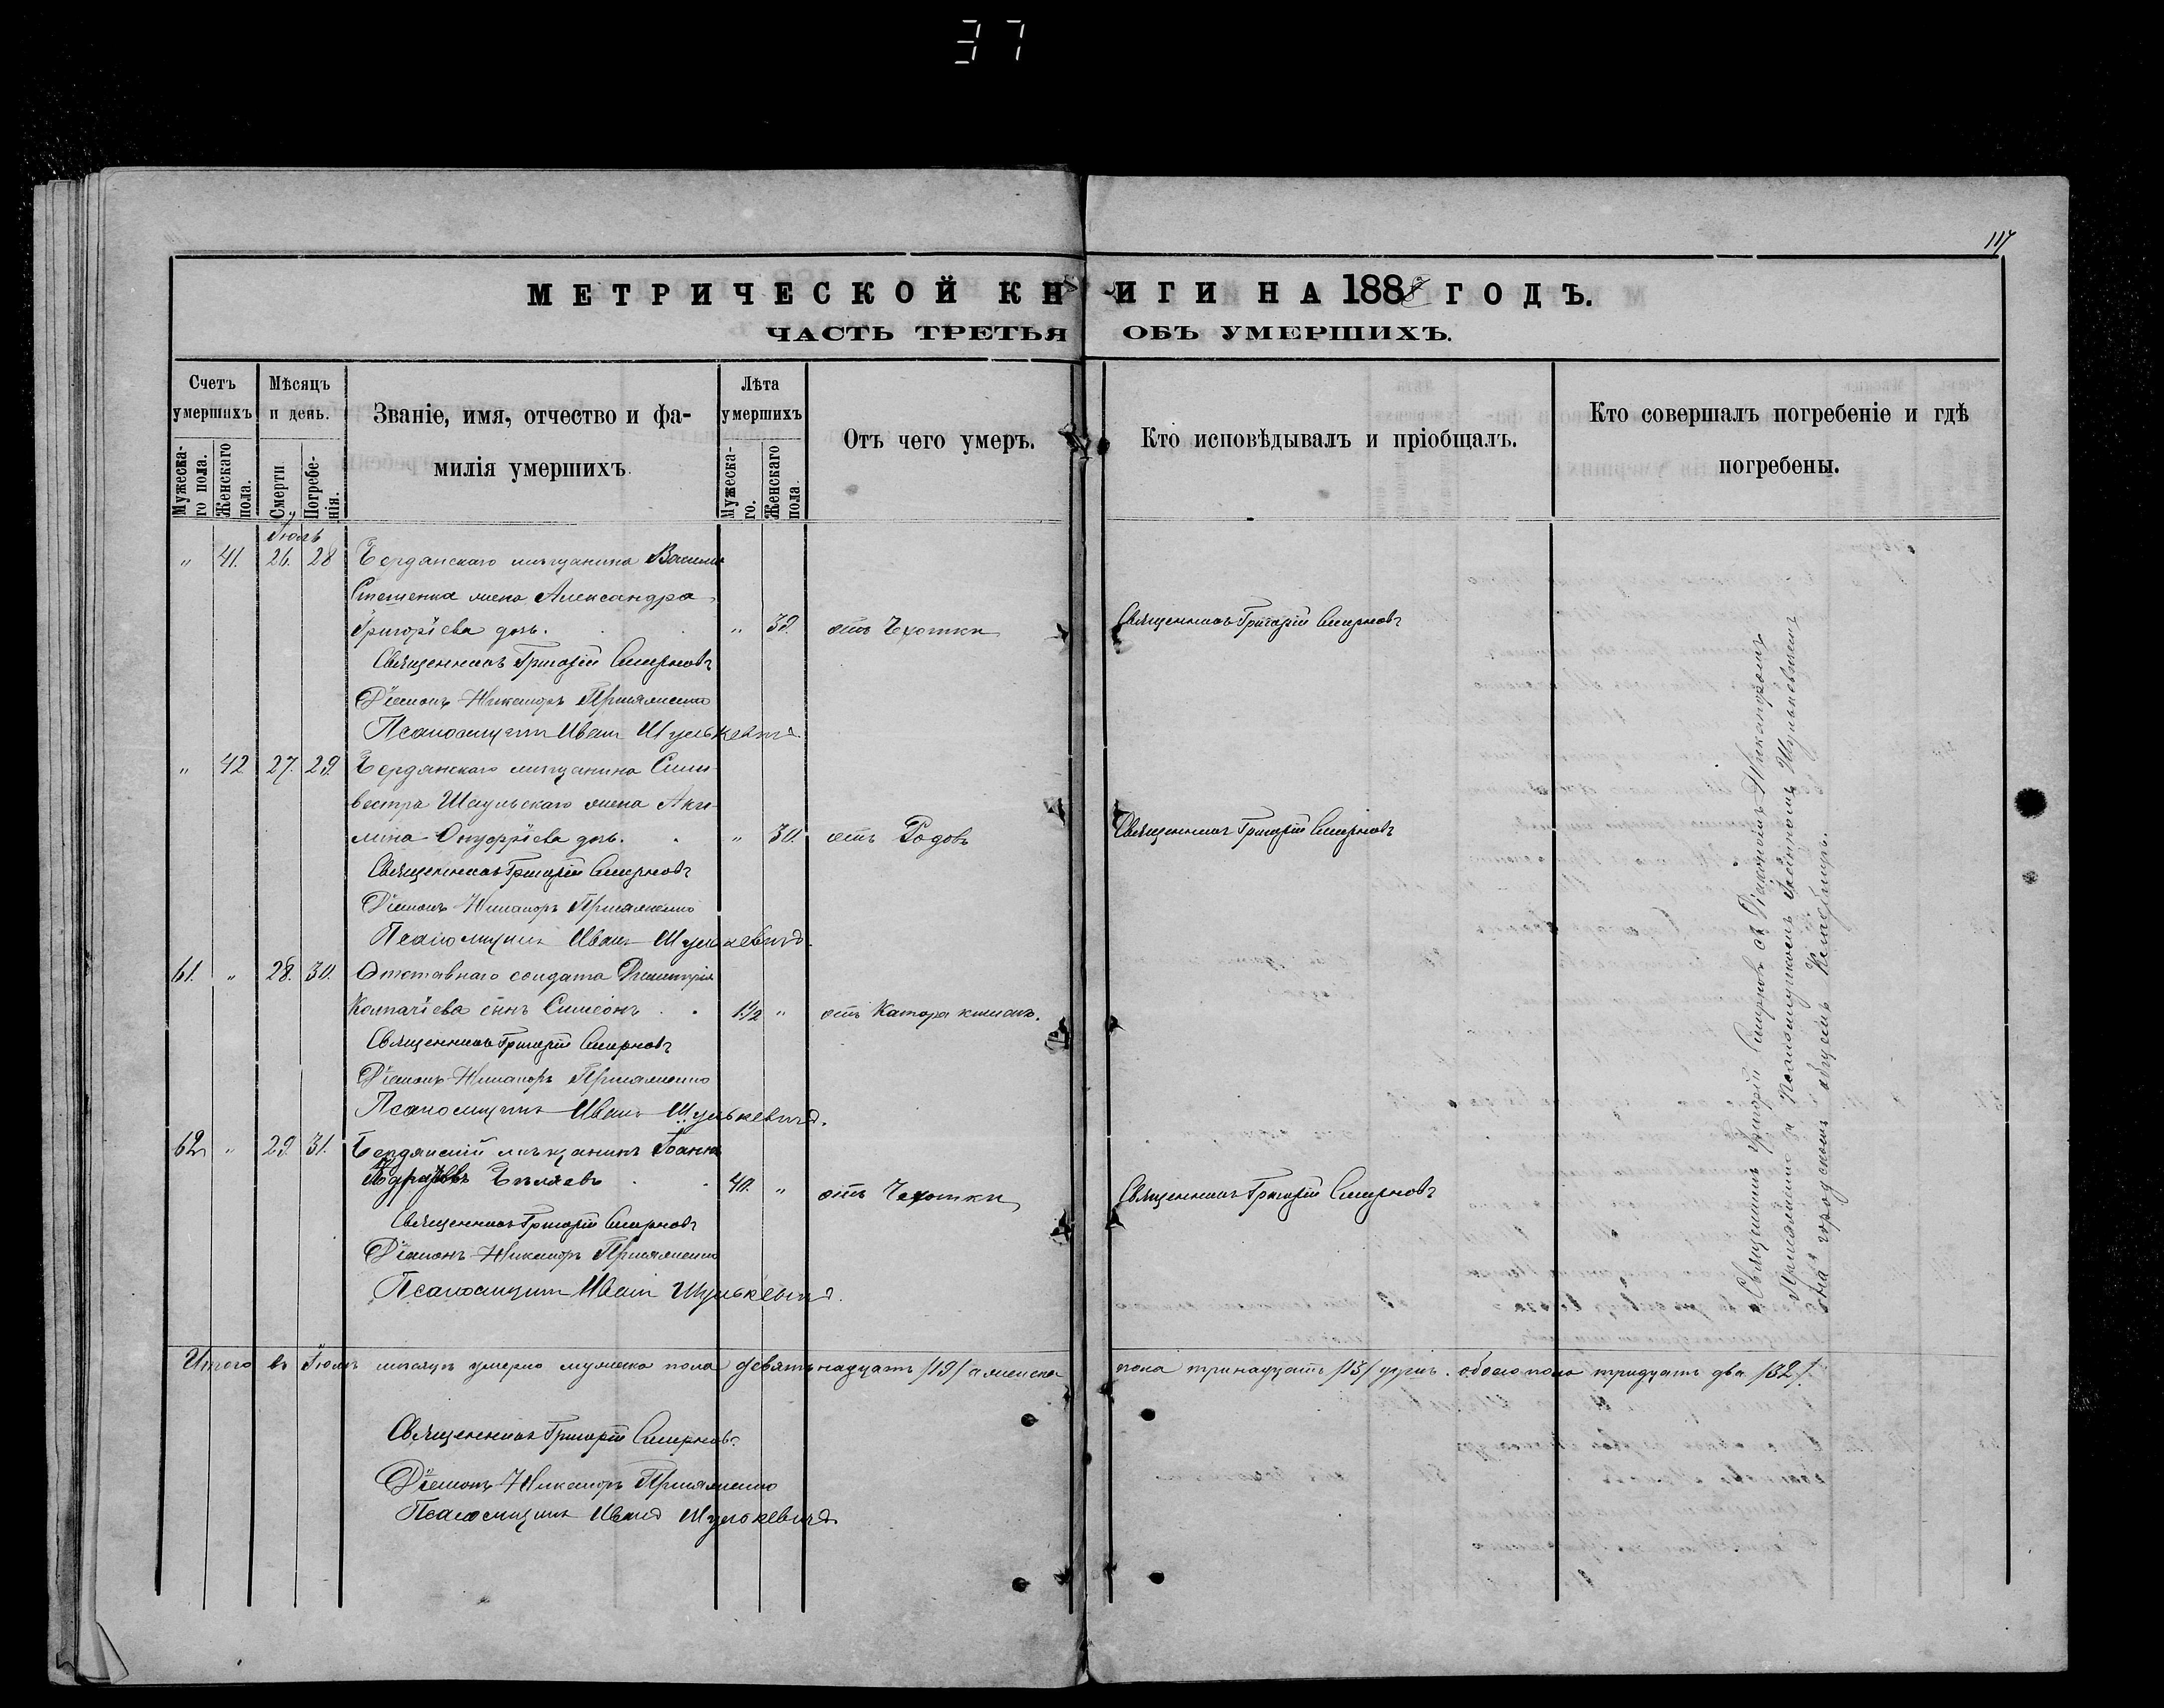 37
117
МЕТРИЧЕСКОЙ КНИГИ НА 188 ГОДЪ.
ЧАСТЬ ТРЕТЬЯ ОБЪ УМЕРШИХЪ.
Счетъ умершихъ
Мужеска-го пола.
Женскаго пола.
Мѣсяцъ и день.
Смерти
Погребе-нія.
Званіе, имя, отчество и фа-
милія умершихъ.
Лѣта умершихъ
Мужеска-го.
Женскаго пола.
Отъ чего умеръ.
Кто исповѣдывалъ и пріобщалъ.
Кто совершалъ погребеніе и гдѣ
погребены.
Іюль
" 41. 26. 28 Бердянскаго мѣщанина Василія
жена Александра
Григоріева дочь. " 39. отъ Чахотки Священникъ Григорій Смирновъ
Священникъ Григорій Смирновъ
Діаконъ Никаноръ
Псаломщикъ Иванъ Шулькевичъ.
" 42 27. 29. Бердянскаго мѣщанина Силь-
вестра жена Аки-
лина Онуфріева дочь. " 30. отъ Родовъ Священникъ Григорій Смирновъ
Священникъ Григорій Смирновъ
Діаконъ Никаноръ
Псаломщикъ Иванъ Шулькевичъ.
61. " 28. 30. Отставнаго солдата Димитрія
сынъ Симеонъ 1½ " отъ Катара кишекъ.
Священникъ Григорій Смирновъ
Діаконъ Никаноръ
Псаломщикъ Иванъ Шулькевичъ.
62 " 29. 31. Бердянскій мѣщанинъ Іоаннъ
Бѣляевъ 40. " отъ Чахотки Священникъ Григорій Смирновъ
Священникъ Григорій Смирновъ
Діаконъ Никаноръ
Псаломщикъ Иванъ Шулькевичъ.
Священникъ Григорій Смирновъ съ Діакономъ Никаноромъ
и Псаломщикомъ Іоанномъ Шулькевичемъ
на городскомъ общемъ кладбищѣ.
Итого въ Іюлѣ мѣсяцѣ умерло мужеска пола девятьнадцать /19/ а женска пола тринадцать /13/ душъ. обоего пола тридцать два /32/.
Священникъ Григорій Смирновъ.
Діаконъ Никаноръ
Псаломщикъ Иванъ Шулькевичъ.